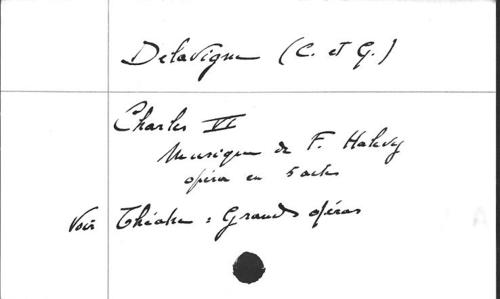 Delavigne (C. et G.)
Charles VI
Musique de F. Halevy
opéra en 5 actes
Voir Théatre : Grands opéras